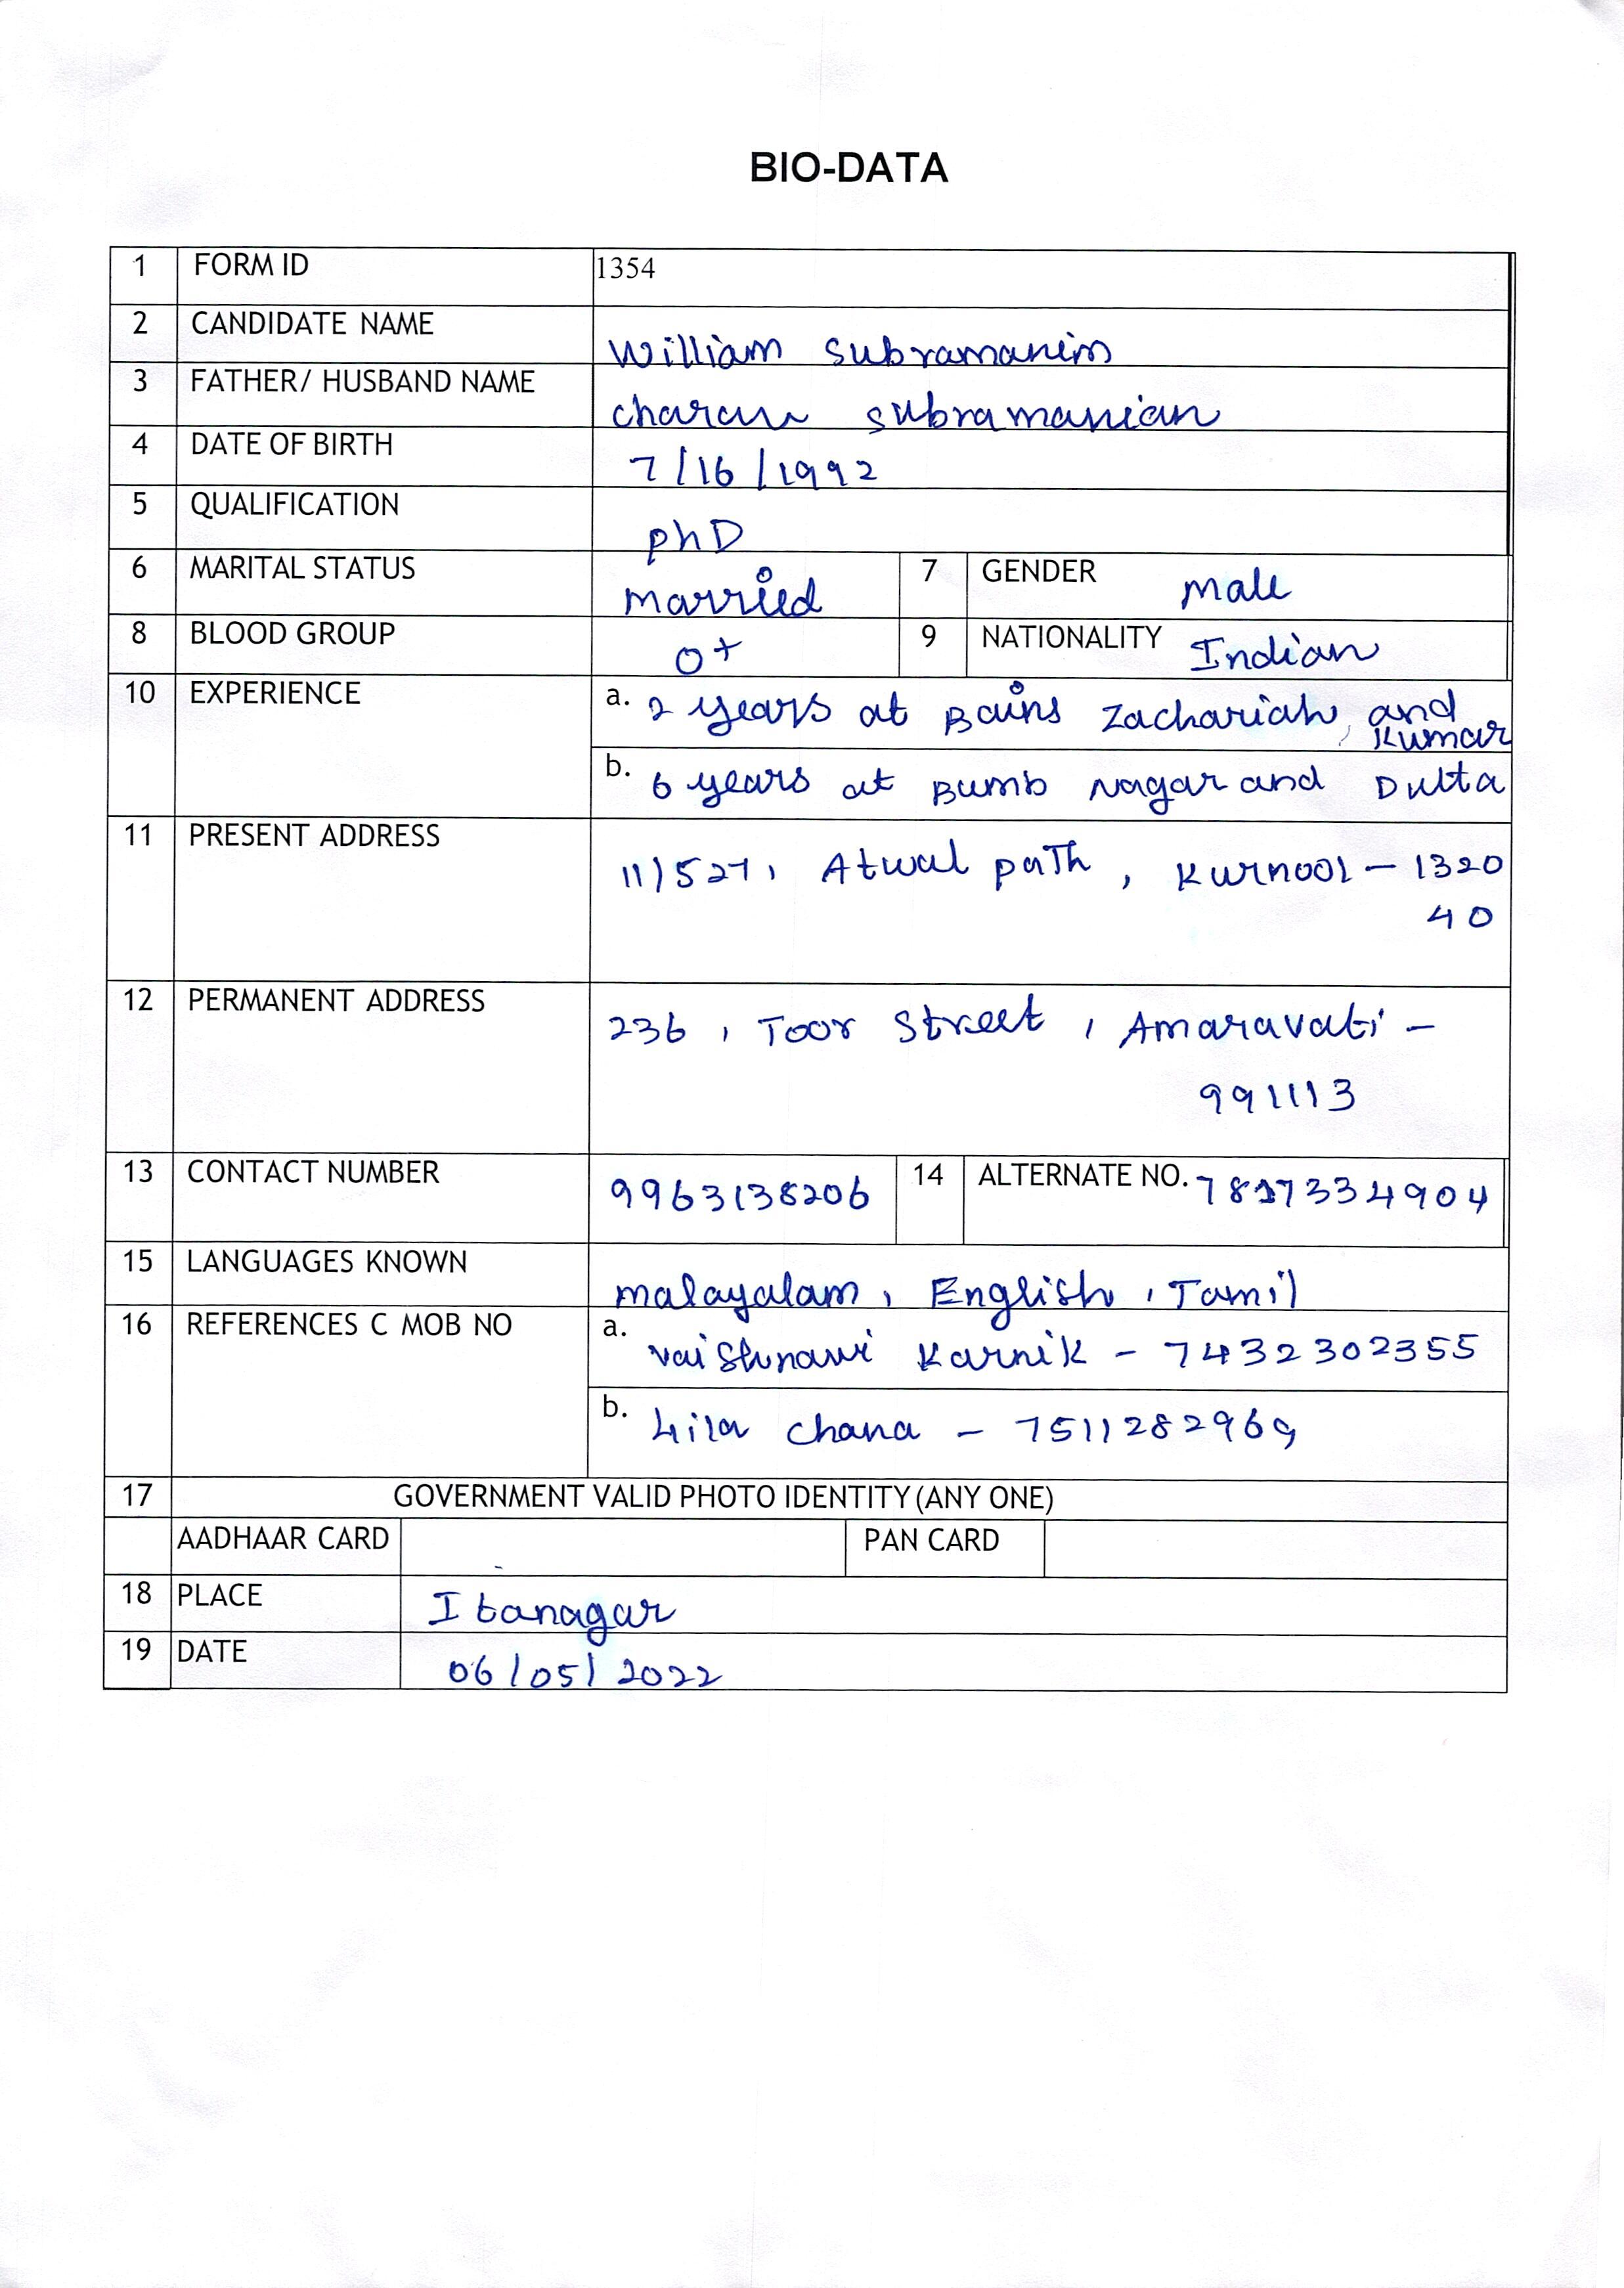 BIO-DATA
1 FORM ID 1354
2 CANDIDATE NAME William Subramanim
3 FATHER/ HUSBAND NAME charan subramanian
4 DATE OF BIRTH 7/16/1992
5 QUALIFICATION phD
6 MARITAL STATUS married 7 GENDER male
8 BLOOD GROUP O+ 9 NATIONALITY Indian
10 EXPERIENCE a. 2 years at Bains Zachariah, and
Kumar
b. 6 years at Bumb Nagar and Dutta
11 PRESENT ADDRESS 11/527, Atwal path, Kurnool - 1320
40
12 PERMANENT ADDRESS 236, Toor Street, Amaravati -
991113
13 CONTACT NUMBER 9963138206 14 ALTERNATE NO. 334904
15 LANGUAGES KNOWN malayalam, English, Tamil
16 REFERENCES C MOB NO a. vaishnavi Karnik - 7432302355
b. Lila Chana - 7511282969
17 GOVERNMENT VALID PHOTO IDENTITY (ANY ONE)
AADHAAR CARD PAN CARD
18 PLACE Itanagar
19 DATE 06/05/2022